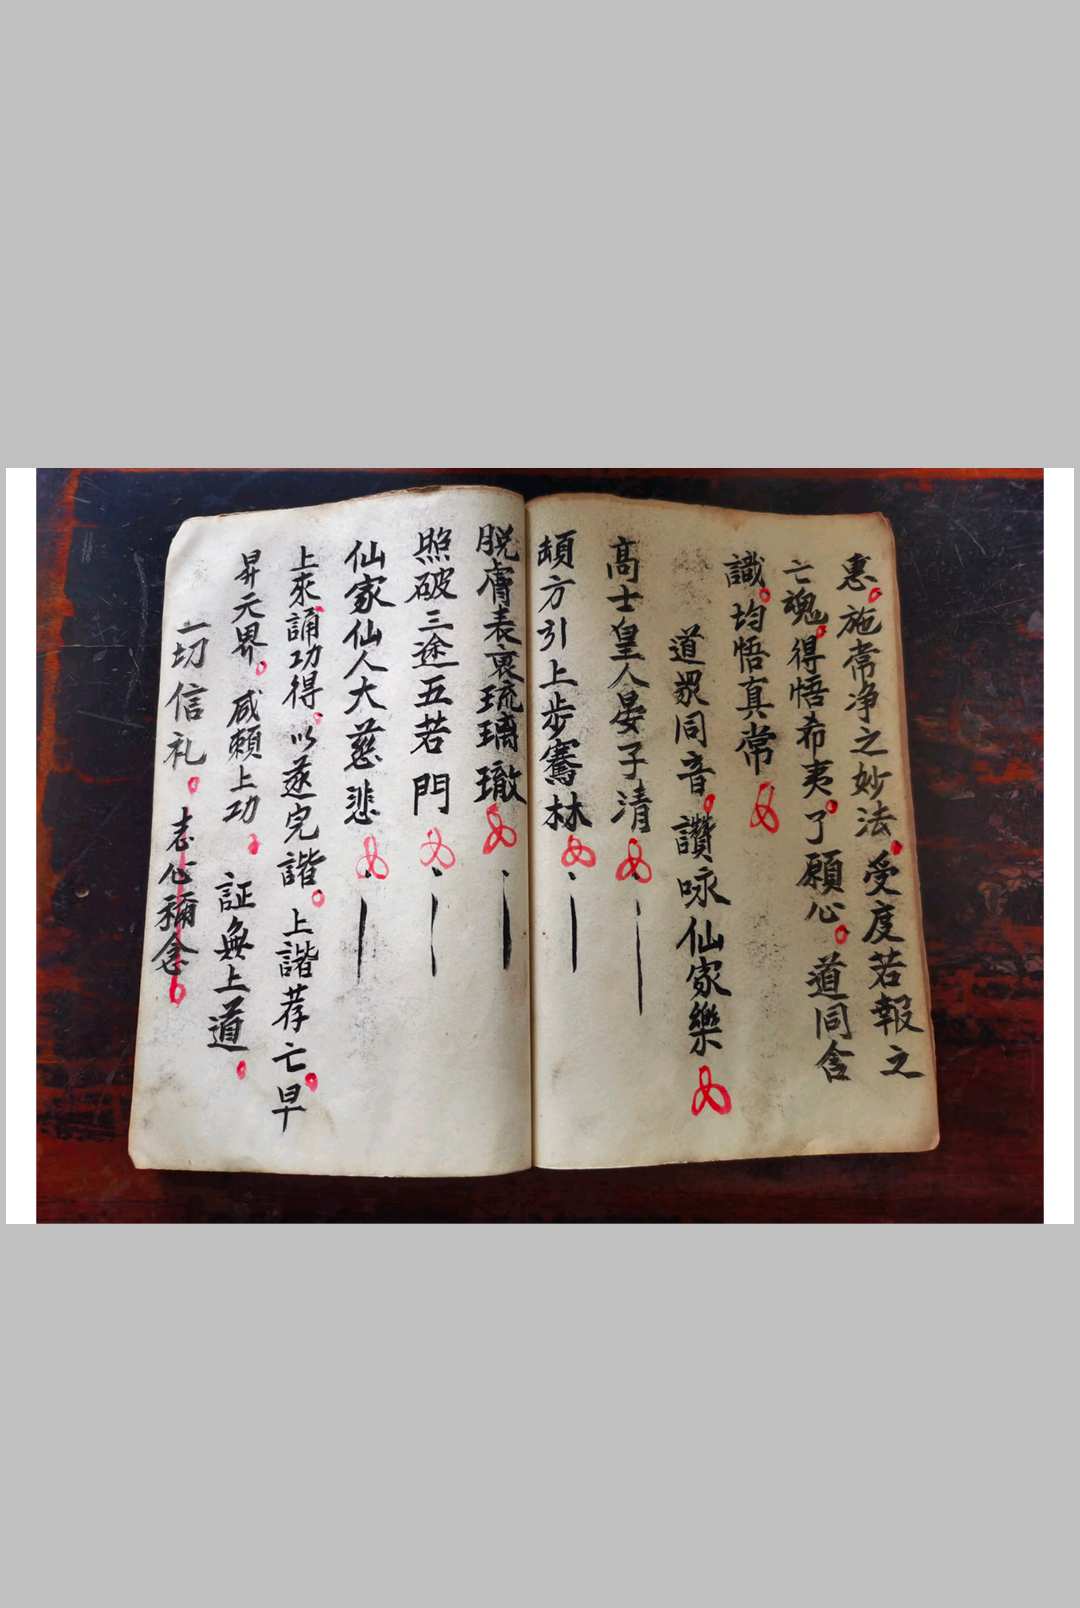 惠。施常净之妙法。受度若報之
亡魂。得悟希夷。了願心。道同含
識。均悟真常
道眾同音。讚咏仙家樂
高士皇人晏子清
頡方引上步騫林
脱膚表裏琉璃璥
照破三途五若門
仙家仙人大慈悲
上來誦功得。以荐完諧。上諧荐亡。早
昇元界。咸賴上功。証無上道。
一切信礼。志心稱念